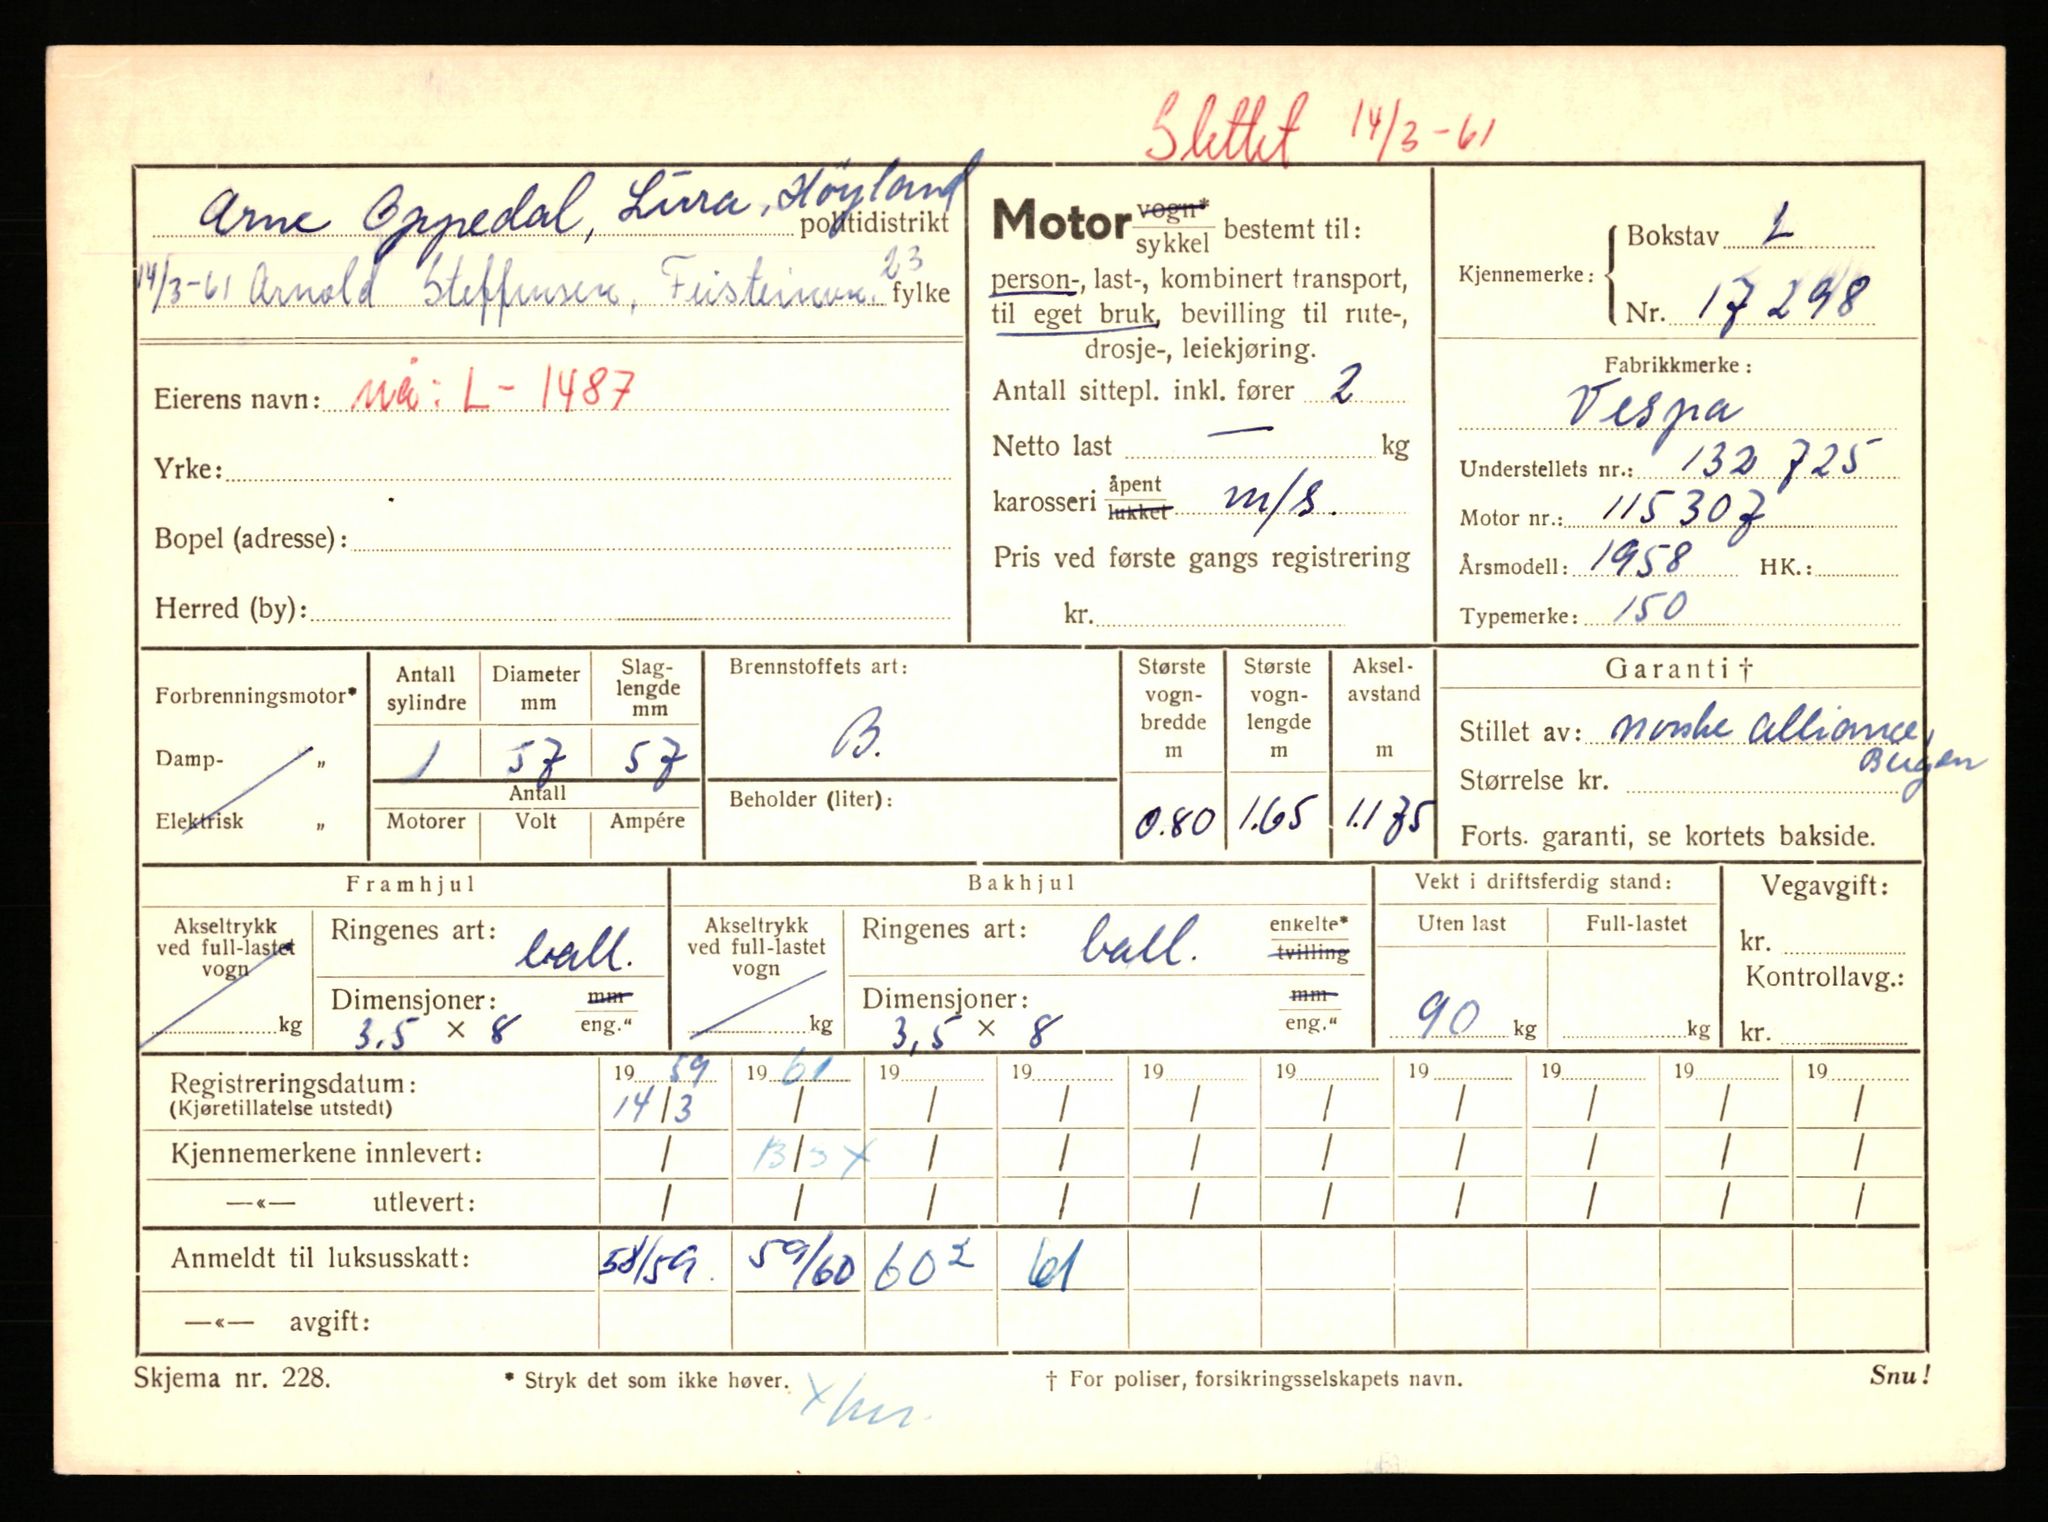 Slettet 14/3-61
Arne Oppedal, Lura, Höyland
politidistrikt
14/3-61 Arnold Steffensen, 23
fylke
Eierens navn: nå: L-1487
Yrke:
Bopel (adresse):
Herred (by):
Motor vogn* / sykkel bestemt til:
person-, last-, kombinert transport,
til eget bruk, bevilling til rute-,
drosje-, leiekjøring.
Antall sittepl. inkl. fører 2
Netto last — kg
karosseri åpent / lukket m/s.
Pris ved første gangs registrering
kr.
Kjennemerke: Bokstav L
Nr. 17298
Fabrikkmerke:
Vespa
Understellets nr.: 132725
Motor nr.: 115307
Årsmodell: 1958 HK.:
Typemerke: 150
Forbrenningsmotor*
Damp- „
Elektrisk „
Antall sylindre Diameter mm Slag-lengde mm
1 57 57
Antall
Motorer Volt Ampére
Brennstoffets art:
B.
Beholder (liter):
Største vogn-bredde m Største vogn-lengde m Aksel-avstand m
0.80 1.65 1.175
Garanti †
Stillet av: Norske Alliance, Bergen
Størrelse kr.
Forts. garanti, se kortets bakside.
Framhjul
Akseltrykk ved full-lastet vogn
kg
Ringenes art: ball.
Dimensjoner: mm / eng."
3,5 × 8
Bakhjul
Akseltrykk ved full-lastet vogn
kg
Ringenes art: ball. enkelte* / tvilling
Dimensjoner: mm / eng."
3,5 × 8
Vekt i driftsferdig stand:
Uten last Full-lastet
90 kg kg
Vegavgift:
kr.
Kontrollavg.:
kr.
Registreringsdatum: 19 59 19 61 19 19 19 19 19 19 19 19
(Kjøretillatelse utstedt) 14/3 / / / / / / / / /
Kjennemerkene innlevert: / 13/3 x / / / / / / / /
—«— utlevert: / / / / / / / / / /
Anmeldt til luksusskatt: 58/59. 59/60 60² 61
—«— avgift:
Skjema nr. 228. * Stryk det som ikke høver. † For poliser, forsikringsselskapets navn. Snu!